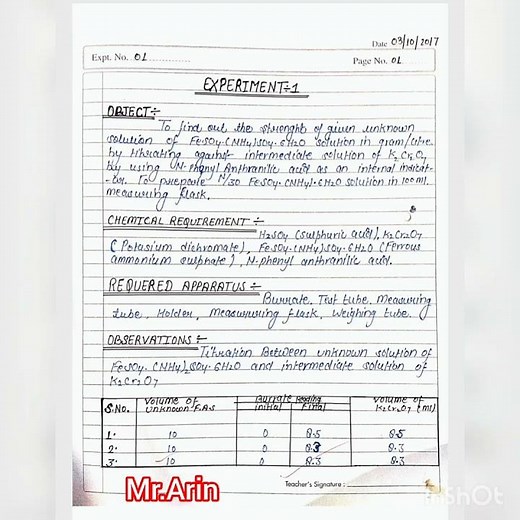 Date 03/10/2017
Expt. No. 01
Page No. 01
EXPERIMENT÷1
OBJECT÷
To find out the strenght of given unknown
solution of FeSO4.(NH4)SO4.6H2O solution in gram/litre
by titrating against intermediate solution of K2Cr2O7
by using N-Phenyl Anthranilic acid as an internal indicat-
-or. To prepare N/30 FeSO4.(NH4).6H2O solution in 100ml.
measuring flask.
CHEMICAL REQUIREMENT÷
H2SO4 (Sulphuric acid), K2Cr2O7
(Potasium dichromate), FeSO4.(NH4)SO4.6H2O (Ferrous
ammonium sulphate), N-phenyl anthranilic acid.
REQUERED APPARATUS÷
Burrate, Test tube, Measuring
tube, Holder, Measururing flask, Weighing tube.
OBSERVATIONS÷
Titration Between unknown solution of
FeSO4.(NH4)2SO4.6H2O and intermediate solution of
K2Cr2O7
S.No. Volume of Unknown F.A.S Burrate Reading Initial Final Volume of K2Cr2O7 (ml)
1. 10 0 8.5 8.5
2. 10 0 8.3 8.3
3. 10 0 8.3 8.3
Mr.Arin
Teacher's Signature :
InShOt